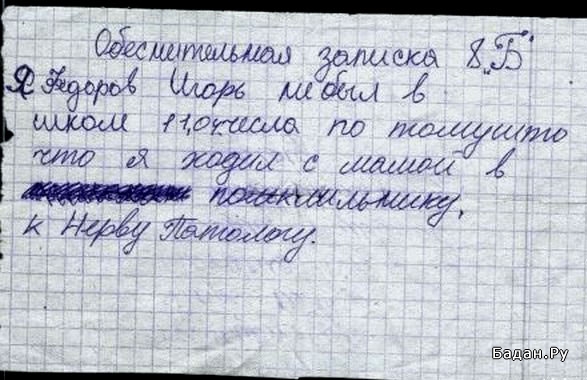 Обеснительная записка 8 „Б“
Я Федоров Игорь небыл в
школ 11,04 числа по томушто
что я ходил с мамой в
к Нерву Патологу.
Бадан.Ру